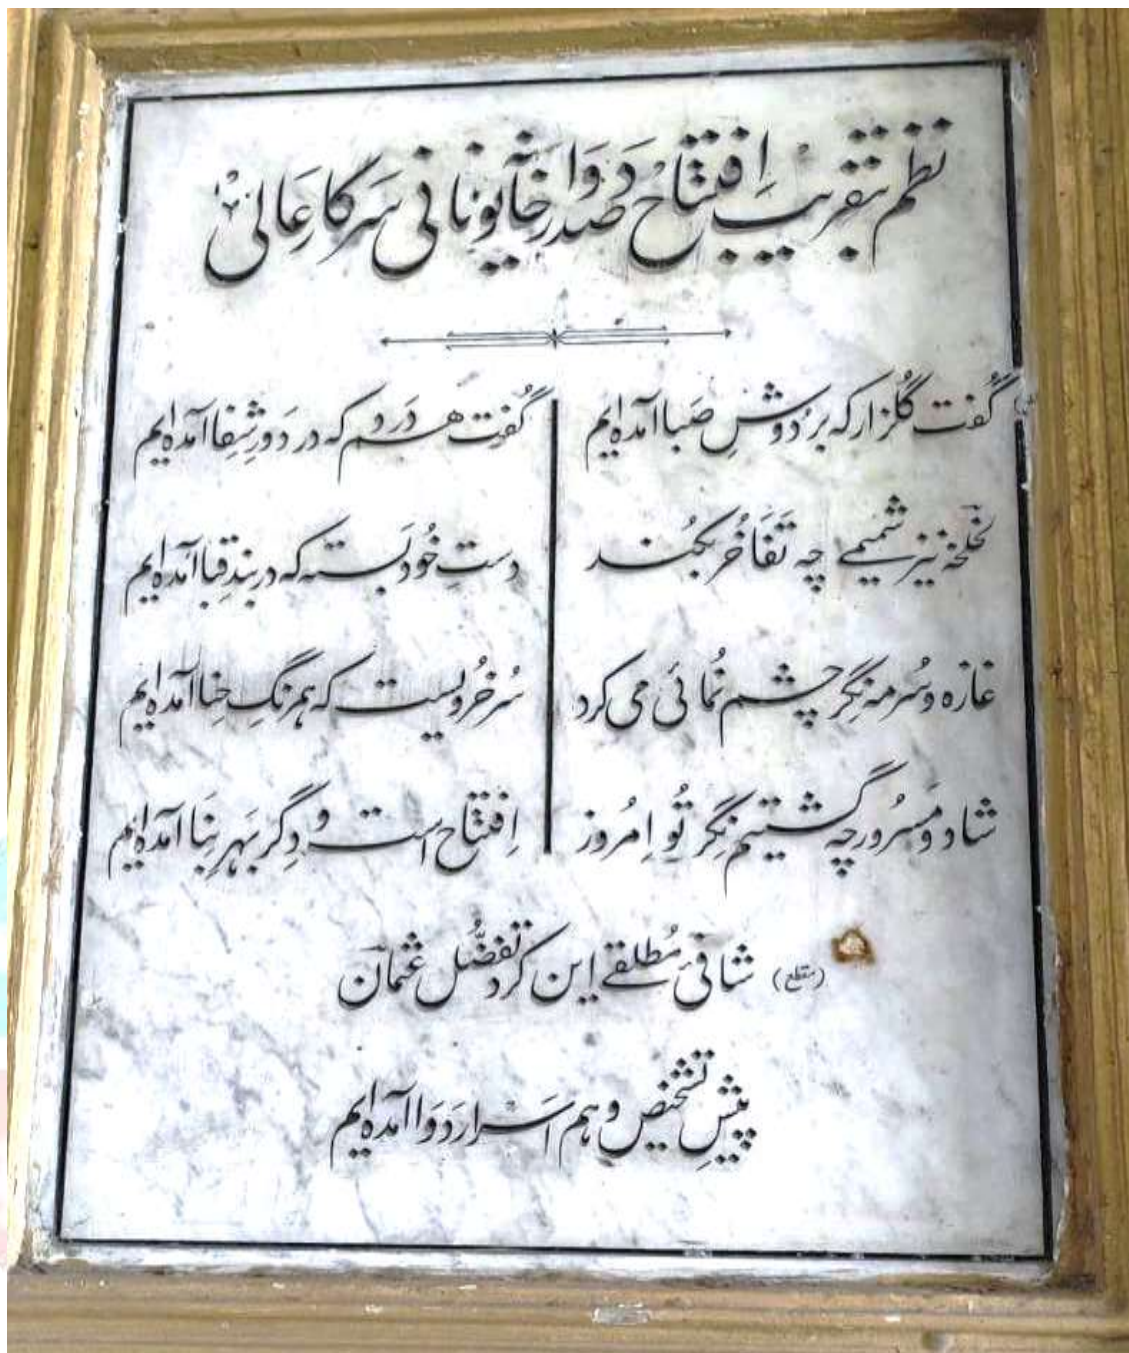 نظم بتقریب اِفتتاح صدر دَوَاخانہ یونانی سَرکارِ عَالی
گُفت گُلزار کہ بر دُوشِ صَبا آمدہ ایم
گُفت ھم دَرد کہ در دَورِ شِفا آمدہ ایم
لخلخہ نیز شمیمے چہ تَفَاخُر بکُند
دَستِ خُود بَستہ کہ در بندِ قبا آمدہ ایم
غازہ و سُرمہ نِگر چشم نُمائی می کرد
سُرخُرو یست کہ ہمرنگِ حِنا آمدہ ایم
شاد و مَسرُور چہ گشتیم نِگر تُو اِمرُوز
اِفتتاح است و دِگر بَہرِ بِنَا آمدہ ایم
(مقطع) شافیٔ مُطلقے این کرد تفضُّل عثمان
پیشِ تشخیص و ہم اَسرارِ دَوَا آمدہ ایم